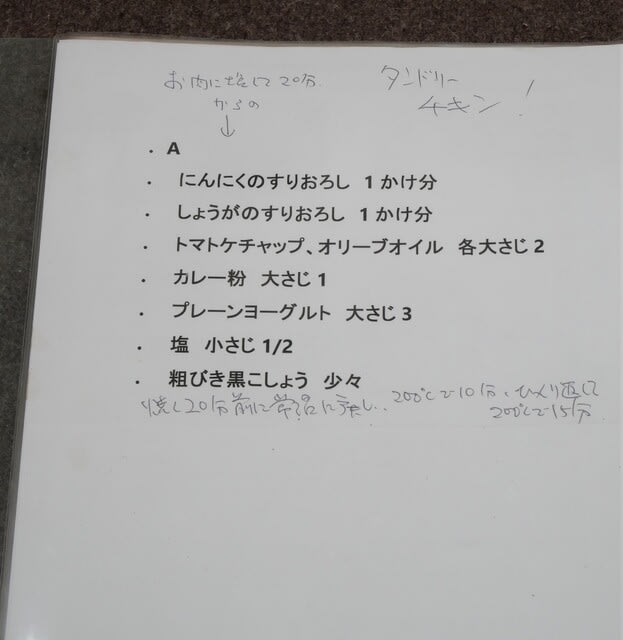 お肉に塩して20分
からの
↓
タンドリー
チキン!
・ A
・ にんにくのすりおろし 1かけ分
・ しょうがのすりおろし 1かけ分
・ トマトケチャップ、オリーブオイル 各大さじ2
・ カレー粉 大さじ1
・ プレーンヨーグルト 大さじ3
・ 塩 小さじ1/2
・ 粗びき黒こしょう 少々
焼く20分前に常温に戻し、200℃で10分、ひっくり返して
200℃で15分